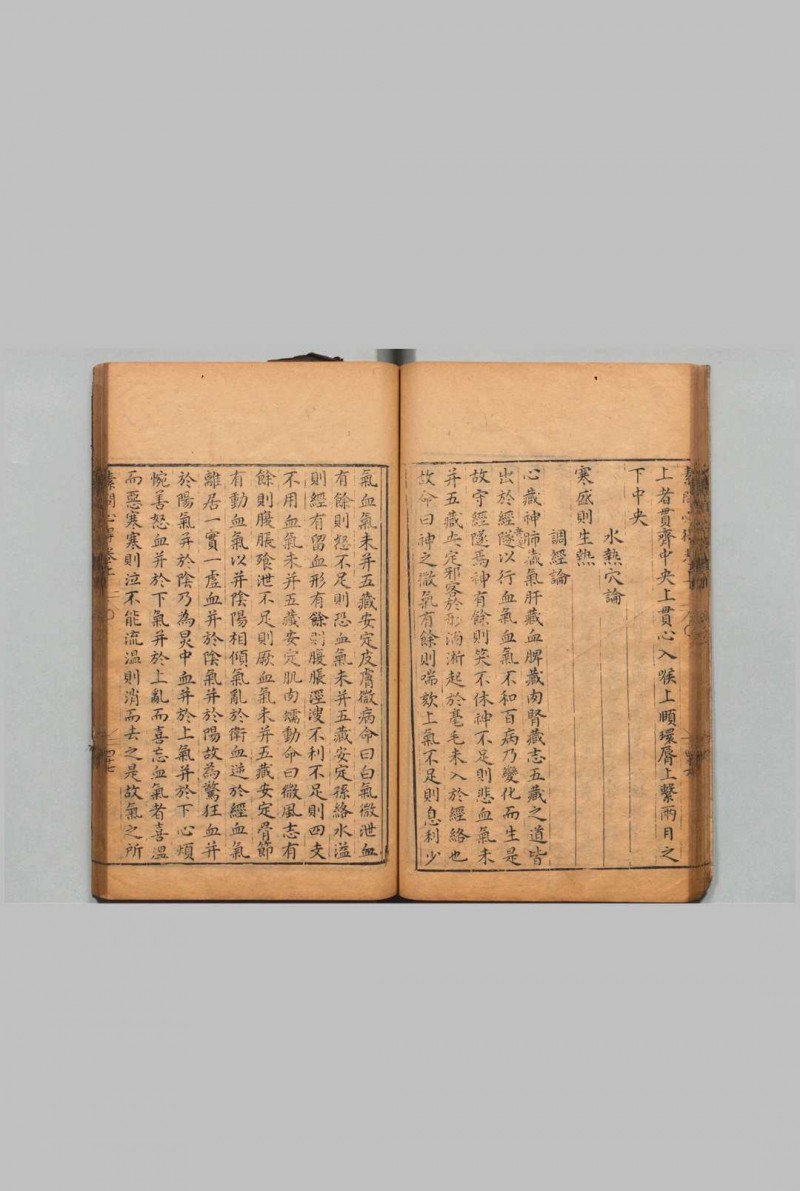 上者貫齊中央上貫心入喉上頤環脣上繫兩目之
下中央
水熱穴論
寒盛則生熱
調經論
心藏神肺藏氣肝藏血脾藏肉腎藏志五藏之道皆
出於經隧以行血氣血氣不和百病乃變化而生是
故守經隧焉神有餘則笑不休神不足則悲血氣未
并五藏安定邪客於形洒淅起於毫毛未入於經絡也
故命曰神之微氣有餘則喘欬上氣不足則息利少
氣血氣未并五藏安定皮膚微病命曰白氣微泄血
有餘則怒不足則恐血氣未并五藏安定孫絡水溢
則經有留血形有餘則腹脹涇溲不利不足則四支
不用血氣未并五藏安定肌肉蠕動命曰微風志有
餘則腹脹飱泄不足則厥血氣未并五藏安定骨節
有動血氣以并陰陽相傾氣亂於衛血逆於經血氣
離居一實一虛血并於陰氣并於陽故為驚狂血并
於陽氣并於陰乃為炅中血并於上氣并於下心煩
惋善怒血并於下氣并於上亂而喜忘血氣者喜溫
而惡寒寒則泣不能流溫則消而去之是故氣之所